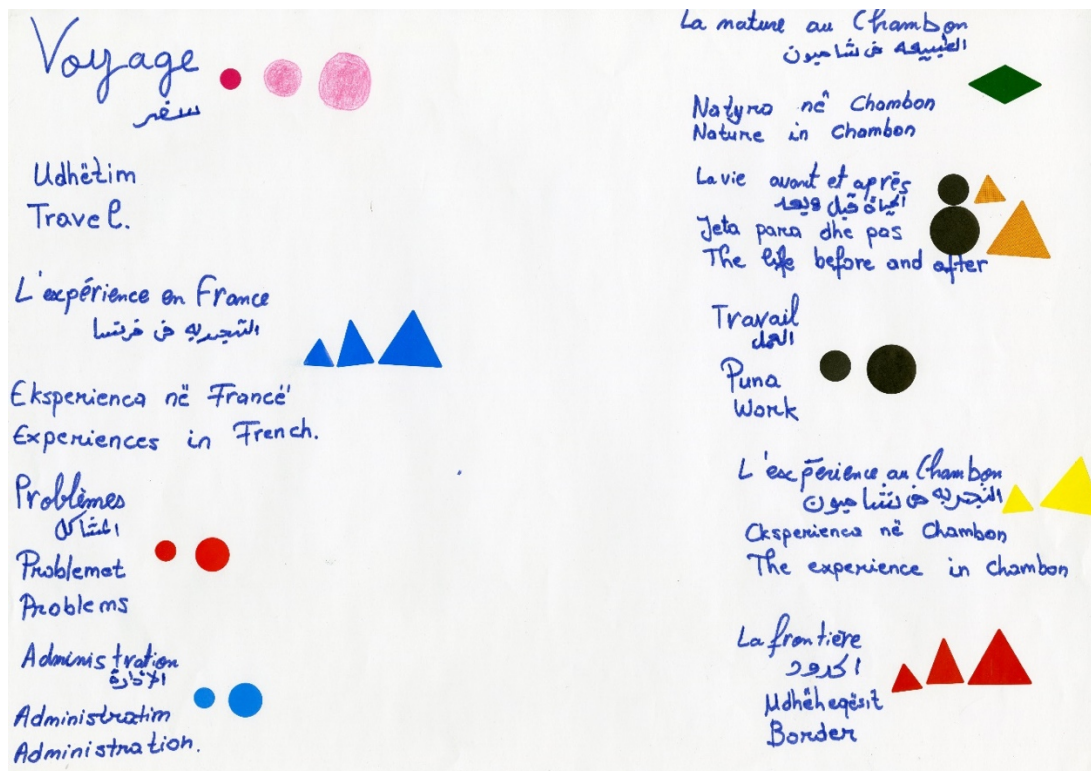 Voyage
سفر
Udhëtim
Travel.
L'expérience en France
التجربه في فرنسا
Eksperienca në Francë'
Experiences in French.
Problèmes
المشاكل
Problemet
Problems
Administration
الإدارة
Administratim
Administration.
La nature au Chambon
الطبيعه في شامبون
Natyra në Chambon
Nature in Chambon
La vie avant et après
الحياة قبل وبعد
Jeta para dhe pas
The life before and after
Travail
العمل
Puna
Work
L'expérience au Chambon
التجربه في تشامبون
Eksperienca në Chambon
The experience in Chambon
La frontière
الحدود
Border